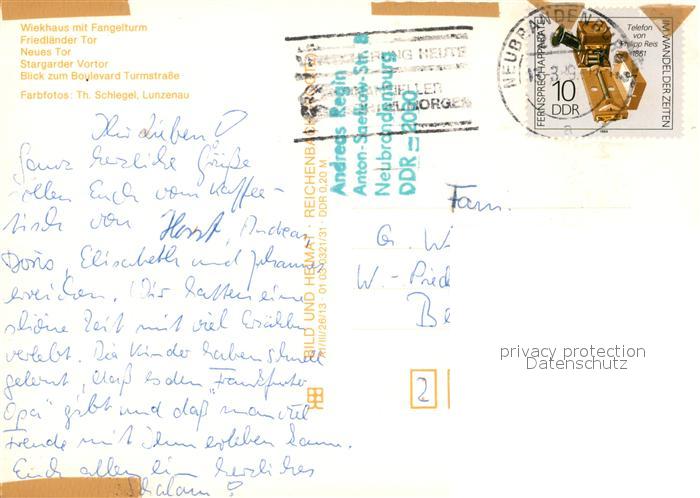 Wiekhaus mit Fangelturm
Friedländer Tor
Neues Tor
Stargarder Vortor
Blick zum Boulevard Turmstraße
Farbfotos: Th. Schlegel, Lunzenau
Ihr Lieben!
Ganz herzliche Grüße
sollen Euch vom Kaffee-
tisch von Horst, Andreas,
Doris, Elisabeth und Johannes
erreichen. Wir hatten eine
schöne Zeit mit viel Erzählen
verlebt. Die Kinder haben schnell
gelernt, daß es den "Frankfurter
Opa" gibt und daß man viel
Freude mit ihm erleben kann.
Euch allen ein herzliches
Schalom!
BILD UND HEIMAT · REICHENBACH
A1/III/26/13 01 03 0321/31 · DDR 0,20 M
Andreas Regin
Anton-Saefkow-Str. 8
Neubrandenburg
DDR = 2000
HEUTE
MORGEN
NEUBRANDENB
FERNSPRECHAPPARATE
IM WANDEL DER ZEITEN
Telefon
von
Philipp Reis
1861
10
DDR
Fam.
G. Wi
W-Pieck
Be
2
privacy protection
Datenschutz